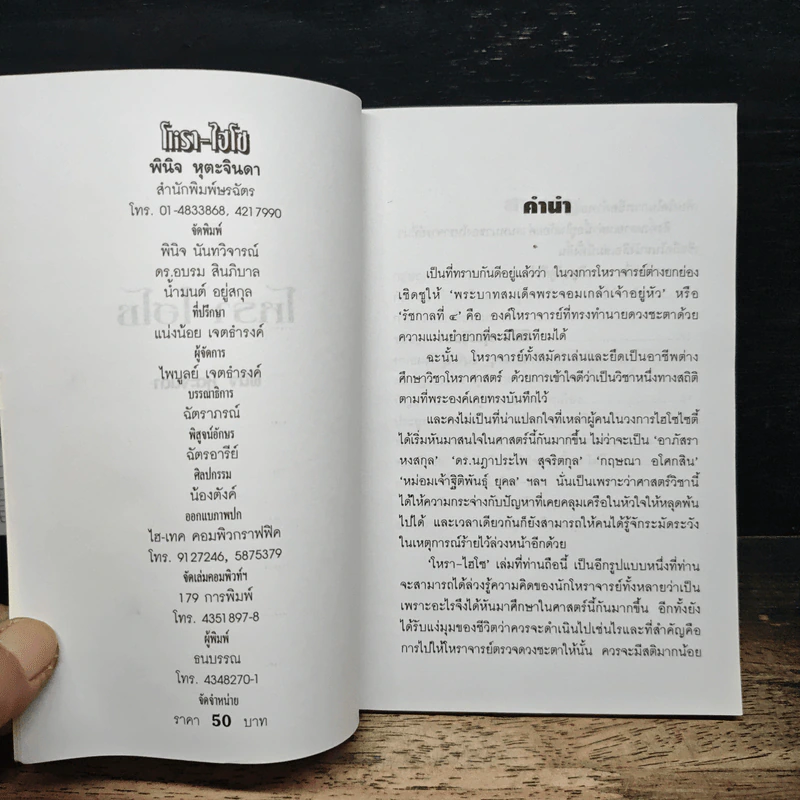 โหรา-ไฮโซ
พินิจ หุตะจินดา
สำนักพิมพ์ษรฉัตร
โทร. 01-4833868, 4217990
จัดพิมพ์
พินิจ นันทวิจารณ์
ดร.อบรม สินภิบาล
น้ำมนต์ อยู่สกุล
ที่ปรึกษา
แน่งน้อย เจตธำรงค์
ผู้จัดการ
ไพบูลย์ เจตธำรงค์
บรรณาธิการ
ฉัตราภรณ์
พิสูจน์อักษร
ฉัตรอารีย์
ศิลปกรรม
น้องตังค์
ออกแบบภาพปก
ไฮ-เทค คอมพิวกราฟฟิค
โทร. 9127246, 5875379
จัดเล่มคอมพิวท์ฯ
179 การพิมพ์
โทร. 4351897-8
ผู้พิมพ์
ธนบรรณ
โทร. 4348270-1
จัดจำหน่าย
ราคา 50 บาท
คำนำ
เป็นที่ทราบกันดีอยู่แล้วว่า ในวงการโหราจารย์ต่างยกย่อง
เชิดชูให้ 'พระบาทสมเด็จพระจอมเกล้าเจ้าอยู่หัว' หรือ
'รัชกาลที่ ๔' คือ องค์โหราจารย์ที่ทรงทำนายดวงชะตาด้วย
ความแม่นยำยากที่จะมีใครเทียมได้
ฉะนั้น โหราจารย์ทั้งสมัครเล่นและยึดเป็นอาชีพต่าง
ศึกษาวิชาโหราศาสตร์ ด้วยการเข้าใจดีว่าเป็นวิชาหนึ่งทางสถิติ
ตามที่พระองค์เคยทรงบันทึกไว้
และคงไม่เป็นที่น่าแปลกใจที่เหล่าผู้คนในวงการไฮโซไซตี้
ได้เริ่มหันมาสนใจในศาสตร์นี้กันมากขึ้น ไม่ว่าจะเป็น 'อาภัสรา
หงสกุล' 'ดร.นฏาประไพ สุจริตกุล' 'กฤษณา อโศกสิน'
'หม่อมเจ้าฐิติพันธุ์ ยุคล' ฯลฯ นั่นเป็นเพราะว่าศาสตร์วิชานี้
ได้ให้ความกระจ่างกับปัญหาที่เคยคลุมเครือในหัวใจให้หลุดพ้น
ไปได้ และเวลาเดียวกันก็ยังสามารถให้คนได้รู้จักระมัดระวัง
ในเหตุการณ์ร้ายไว้ล่วงหน้าอีกด้วย
'โหรา-ไฮโซ' เล่มที่ท่านถือนี้ เป็นอีกรูปแบบหนึ่งที่ท่าน
จะสามารถได้ล่วงรู้ความคิดของนักโหราจารย์ทั้งหลายว่าเป็น
เพราะอะไรจึงได้หันมาศึกษาในศาสตร์นี้กันมากขึ้น อีกทั้งยัง
ได้รับแง่มุมของชีวิตว่าควรจะดำเนินไปเช่นไรและที่สำคัญคือ
การไปให้โหราจารย์ตรวจดวงชะตาให้นั้น ควรจะมีสติมากน้อย